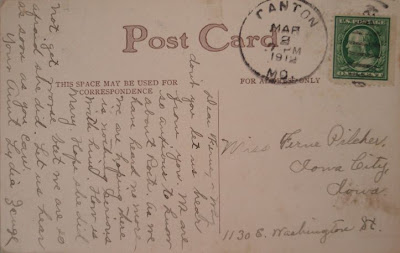 Post Card
THIS SPACE MAY BE USED FOR
CORRESPONDENCE
FOR ADDRESS ONLY
CANTON
MAR
2
PM
1912
MO.
Dear Fern, - Why
don't you let us hear
from you. We are
so anxious to know
about Ruth as we
have heard no more
we are hoping there
is nothing serious
with. How is
Mary. Hope she did
not get worse. But we are so
afraid she did. Let us hear
as soon as you can.
Your Aunt Lydia
Miss Ferne Pilcher.
Iowa City,
Iowa.
1130 E. Washington St.